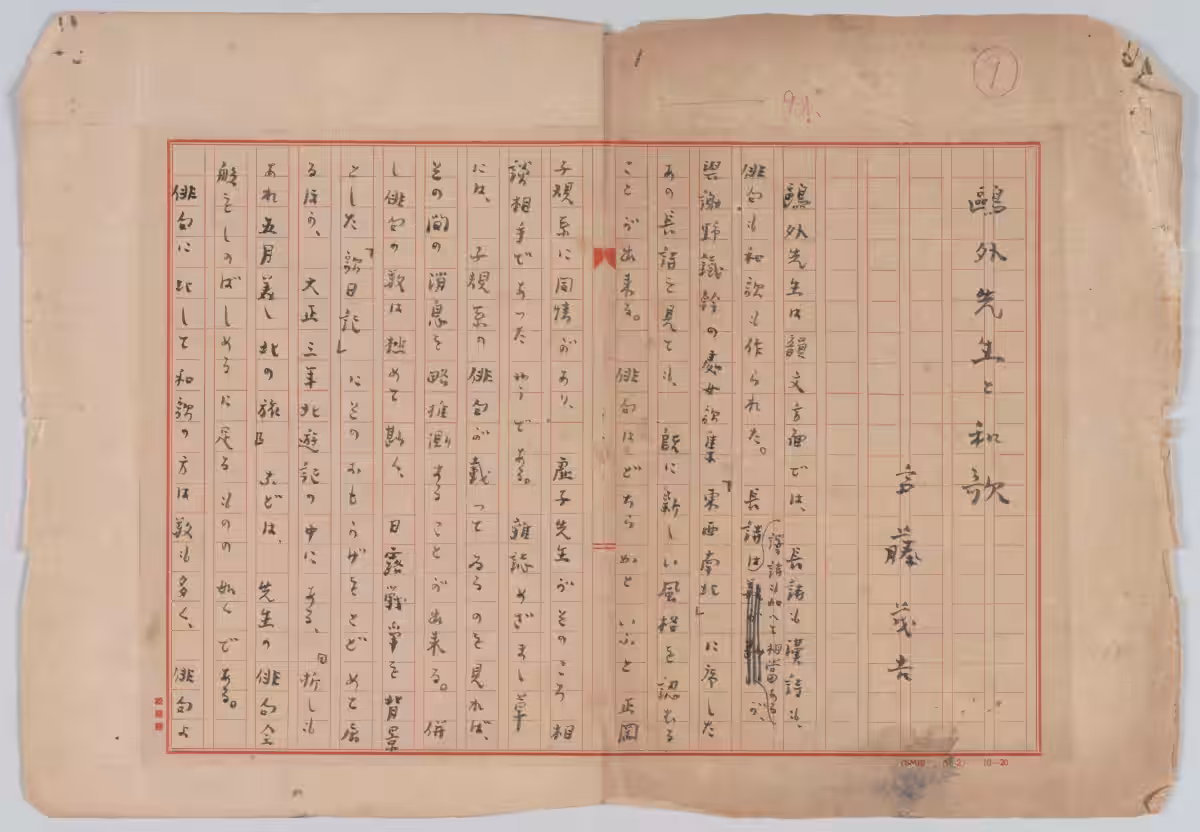 9
鷗外先生と和歌
斎藤茂吉
鷗外先生は韻文方面では、長詩も漢詩も、
俳句も和歌も作られた。長詩は
譯詩も加へて相當あるが、
與謝野鐵幹の處女歌集『東西南北』に序した
あの長詩を見ても、既に新しい風格を認める
ことが出来る。俳句はどちらかといふと正岡
子規系に同情があり、虚子先生がそのころ相
談相手であつたやうである。雜誌めざまし草
には、子規系の俳句が載つてゐるのを見れば、
その間の消息を略推測することが出来る。併
し俳句の數は極めて尠く、日露戰爭を背景
とした『歌日記』にそのおもかげをとどめて居
るほか、大正三年北遊記の中にある、『折しも
あれ五月美し北の旅』などは、先生の俳句全
般をしのばしめるに足るものの如くである。
俳句に比して和歌の方は數も多く、俳句よ
10—20